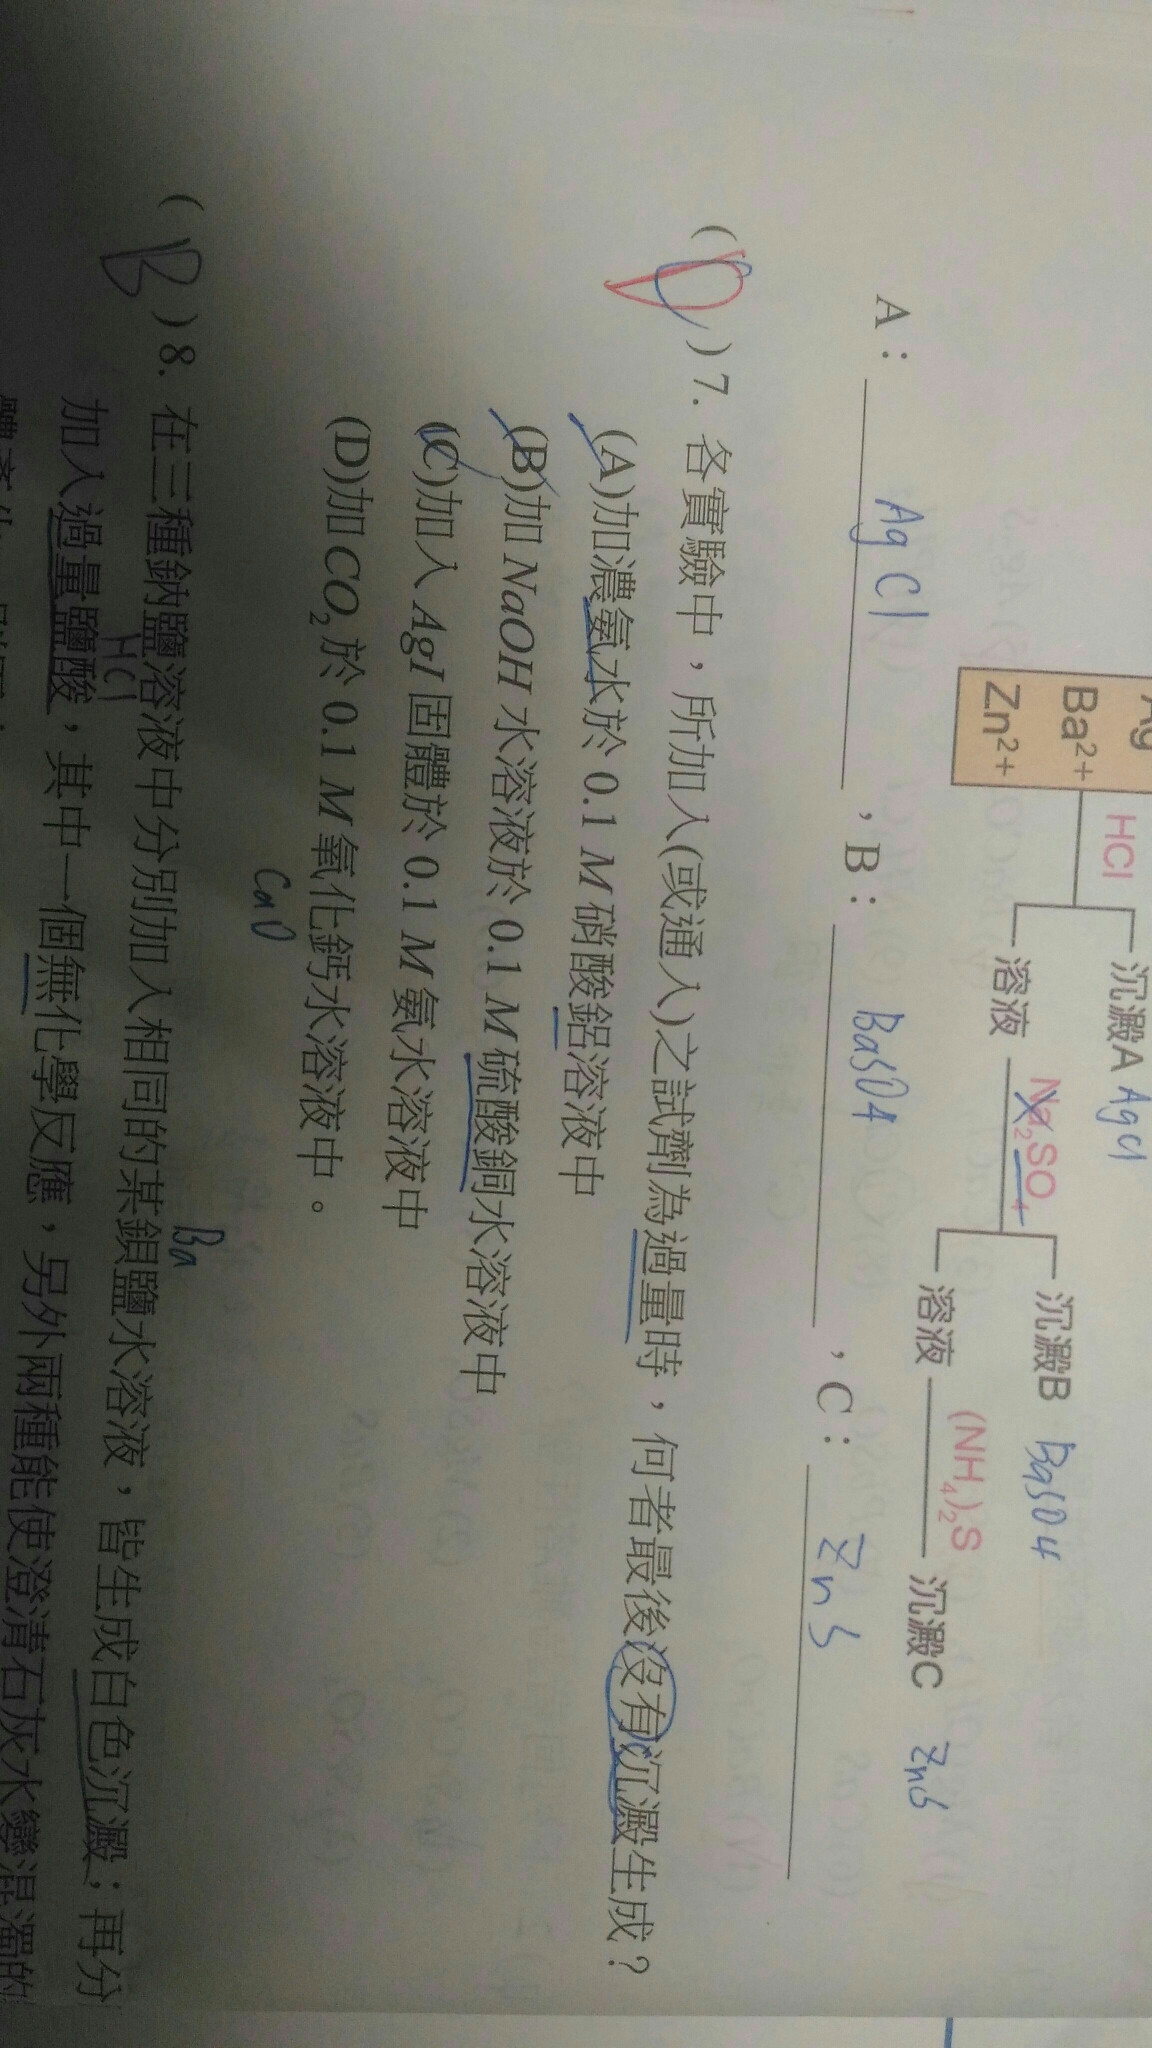 Ag
Ba²⁺
Zn²⁺
HCl
沉澱A AgCl
溶液
Na₂SO₄
沉澱B BaSO4
溶液
(NH₄)₂S
沉澱C ZnS
A： AgCl ，B： BaSO4 ，C： ZnS
( D )7. 各實驗中，所加入(或通入)之試劑為過量時，何者最後沒有沉澱生成？
(A)加濃氨水於 0.1 M 硝酸鋁溶液中
(B)加 NaOH 水溶液於 0.1 M 硫酸銅水溶液中
(C)加入 AgI 固體於 0.1 M 氨水溶液中
(D)加 CO₂ 於 0.1 M 氧化鈣水溶液中。
CaO
Ba
( B )8. 在三種鈉鹽溶液中分別加入相同的某鋇鹽水溶液，皆生成白色沉澱；再分
HCl
加入過量鹽酸，其中一個無化學反應，另外兩種能使澄清石灰水變混濁的